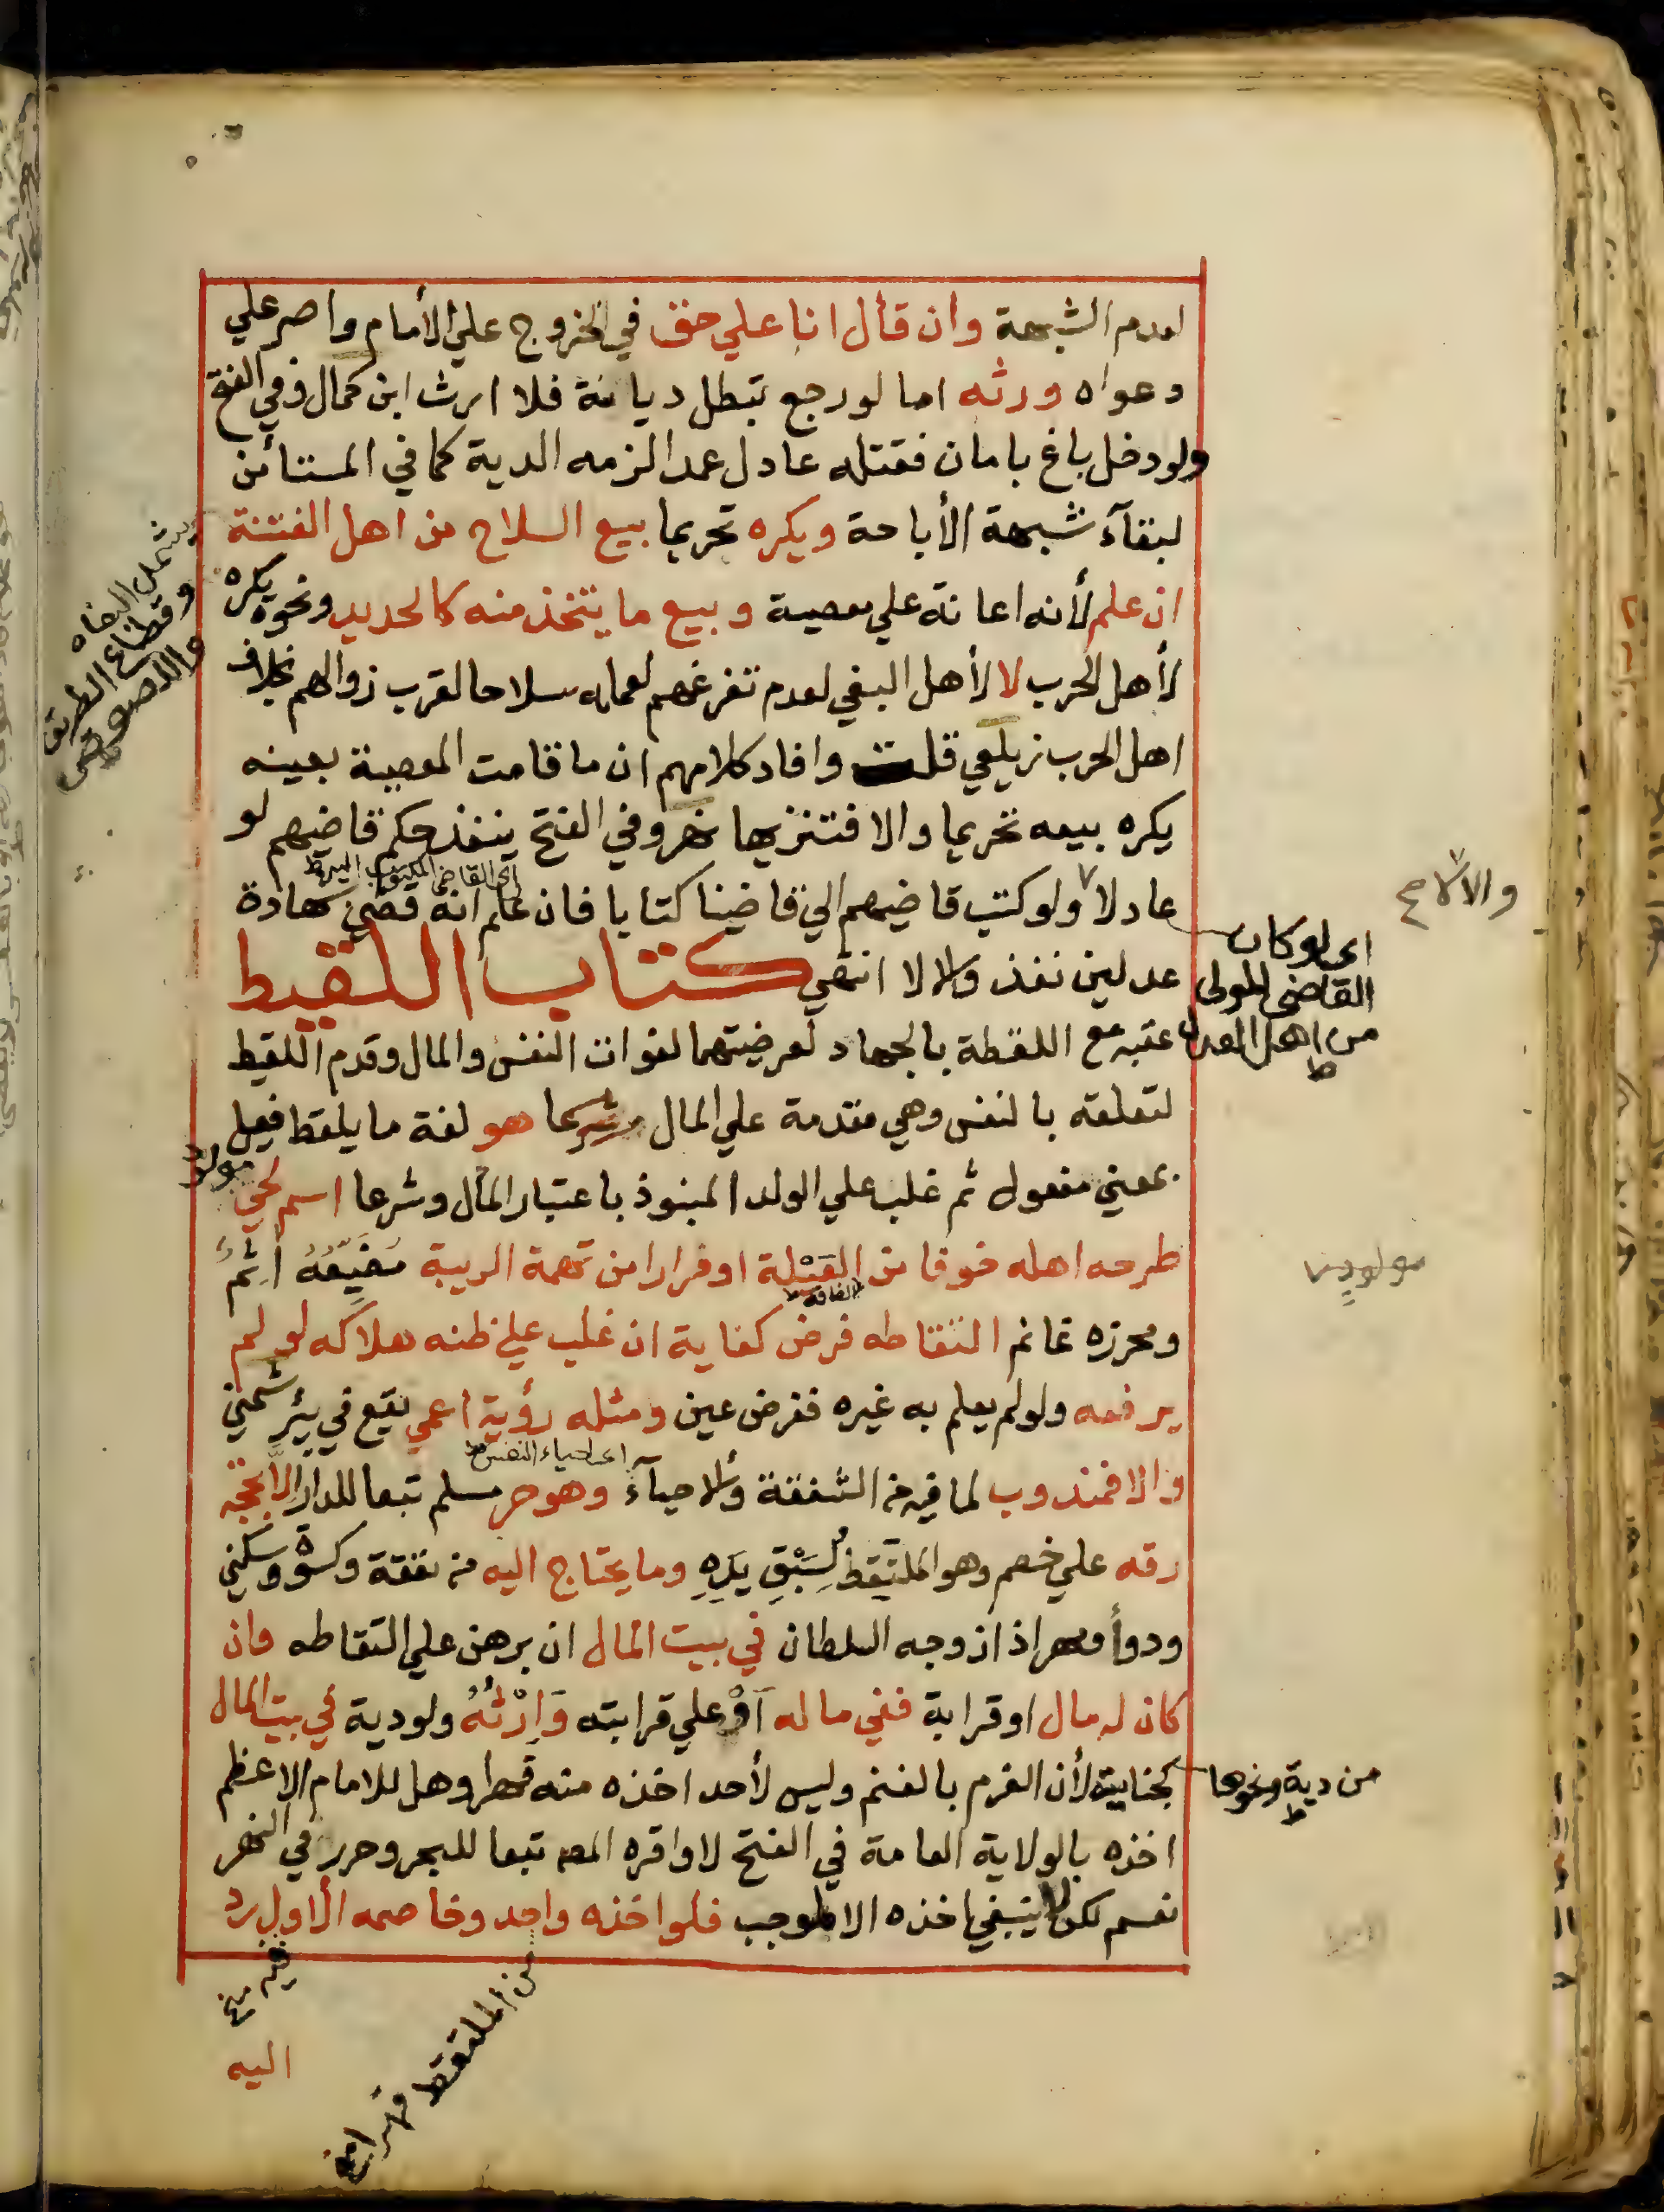 لعدم الشبهة وان قال انا علي حق في الخروج علي الأمام واصر علي
دعواه ورثه اما لو رجع تبطل ديانة فلا ارث ابن كمال وفي الفتح
ولو دخل باغ بامان فقتله عادل عمدا لزمه الدية كما في المستأمن
لبقآء شبهة الأباحة ويكره تحريما بيع السلاح من اهل الفتنة
ان علم لأنه اعانة علي معصية وبيع ما يتخذ منه كالحديد ونحوه يكره
لأهل الحرب لا لأهل البغي لعدم تفرغهم لعمله سلاحا لقرب زوالهم بخلاف
اهل الحرب زيلعي قلت وافاد كلامهم ان ما قامت المعصية بعينه
يكره بيعه تحريما والا فتنزيها نهر وفي الفتح ينفذ حكم قاضيهم لو
اي القاضي المكتوب اليه ط
عادلا ولو كتب قاضيهم الي قاضينا كتابا فان علم انه قضي شهادة
عدلين نفذ والا لا انتهي كتاب اللقيط
عقبه مع اللقطة بالجهاد لعرضيتهما لفوات النفس والمال وقدم اللقيط
لتعلقه بالنفس وهي مقدمة علي المال شرعا هو لغة ما يلقط فعيل
بمعني مفعول ثم غلب علي الولد المنبوذ باعتبار المآل وشرعا اسم لحي
مولود
طرحه اهله خوفا من العَيْلة او فرارا من تهمة الريبة مُضَيِّعُهُ آثِمٌ
الفاقه
ومحرزه غانم التقاطه فرض كفاية ان غلب علي ظنه هلاكه لو لم
يرفعه ولو لم يعلم به غيره ففرض عين ومثله رؤية اعمي يقع في بئر شمني
اي احياء النفس ط
والا فمندوب لما فيه من الشفقة والاحيآء وهو حر مسلم تبعا للدار الا بحجة
رقه علي خصم وهو الملتقط لِسَبْقِ يَدِهِ وما يحتاج اليه من نفقة وكسوة وسكني
ودوأ ومهر اذا زوجه السلطان في بيت المال ان برهن علي التقاطه وان
كان له مال او قرابة ففي ماله اَوْ علي قرابته وَاِرْثُهُ ولو دية في بيت المال
كجنايته لأن الغرم بالغنم وليس لأحد اخذه منه قهرا وهل للامام الاعظم
اخذه بالولاية العامة في الفتح لا واقره المص تبعا للبحر وحرر في النهر
نعم لكن لا ينبغي اخذه الا لموجب فلو اخذه واحد وخاصمه الاول رد
اليه
من الملتقط قهرا
يشمل البغاه
وقطاع الطريق
واللصوص
والا لا ح
اي لو كان
القاضي المولي
من اهل العدل
ط
مولود
من دية ونحوها
ط